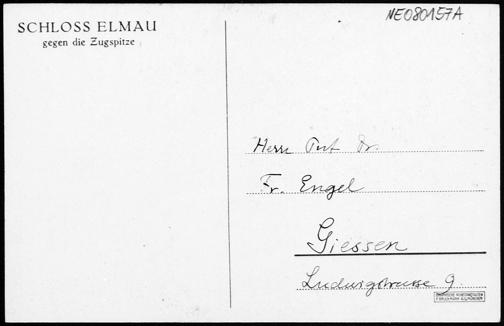 SCHLOSS ELMAU
gegen die Zugspitze
NE080157A
Herrn Prof. Dr.
Fr. Engel
Giessen
Ludwigstrasse 9.